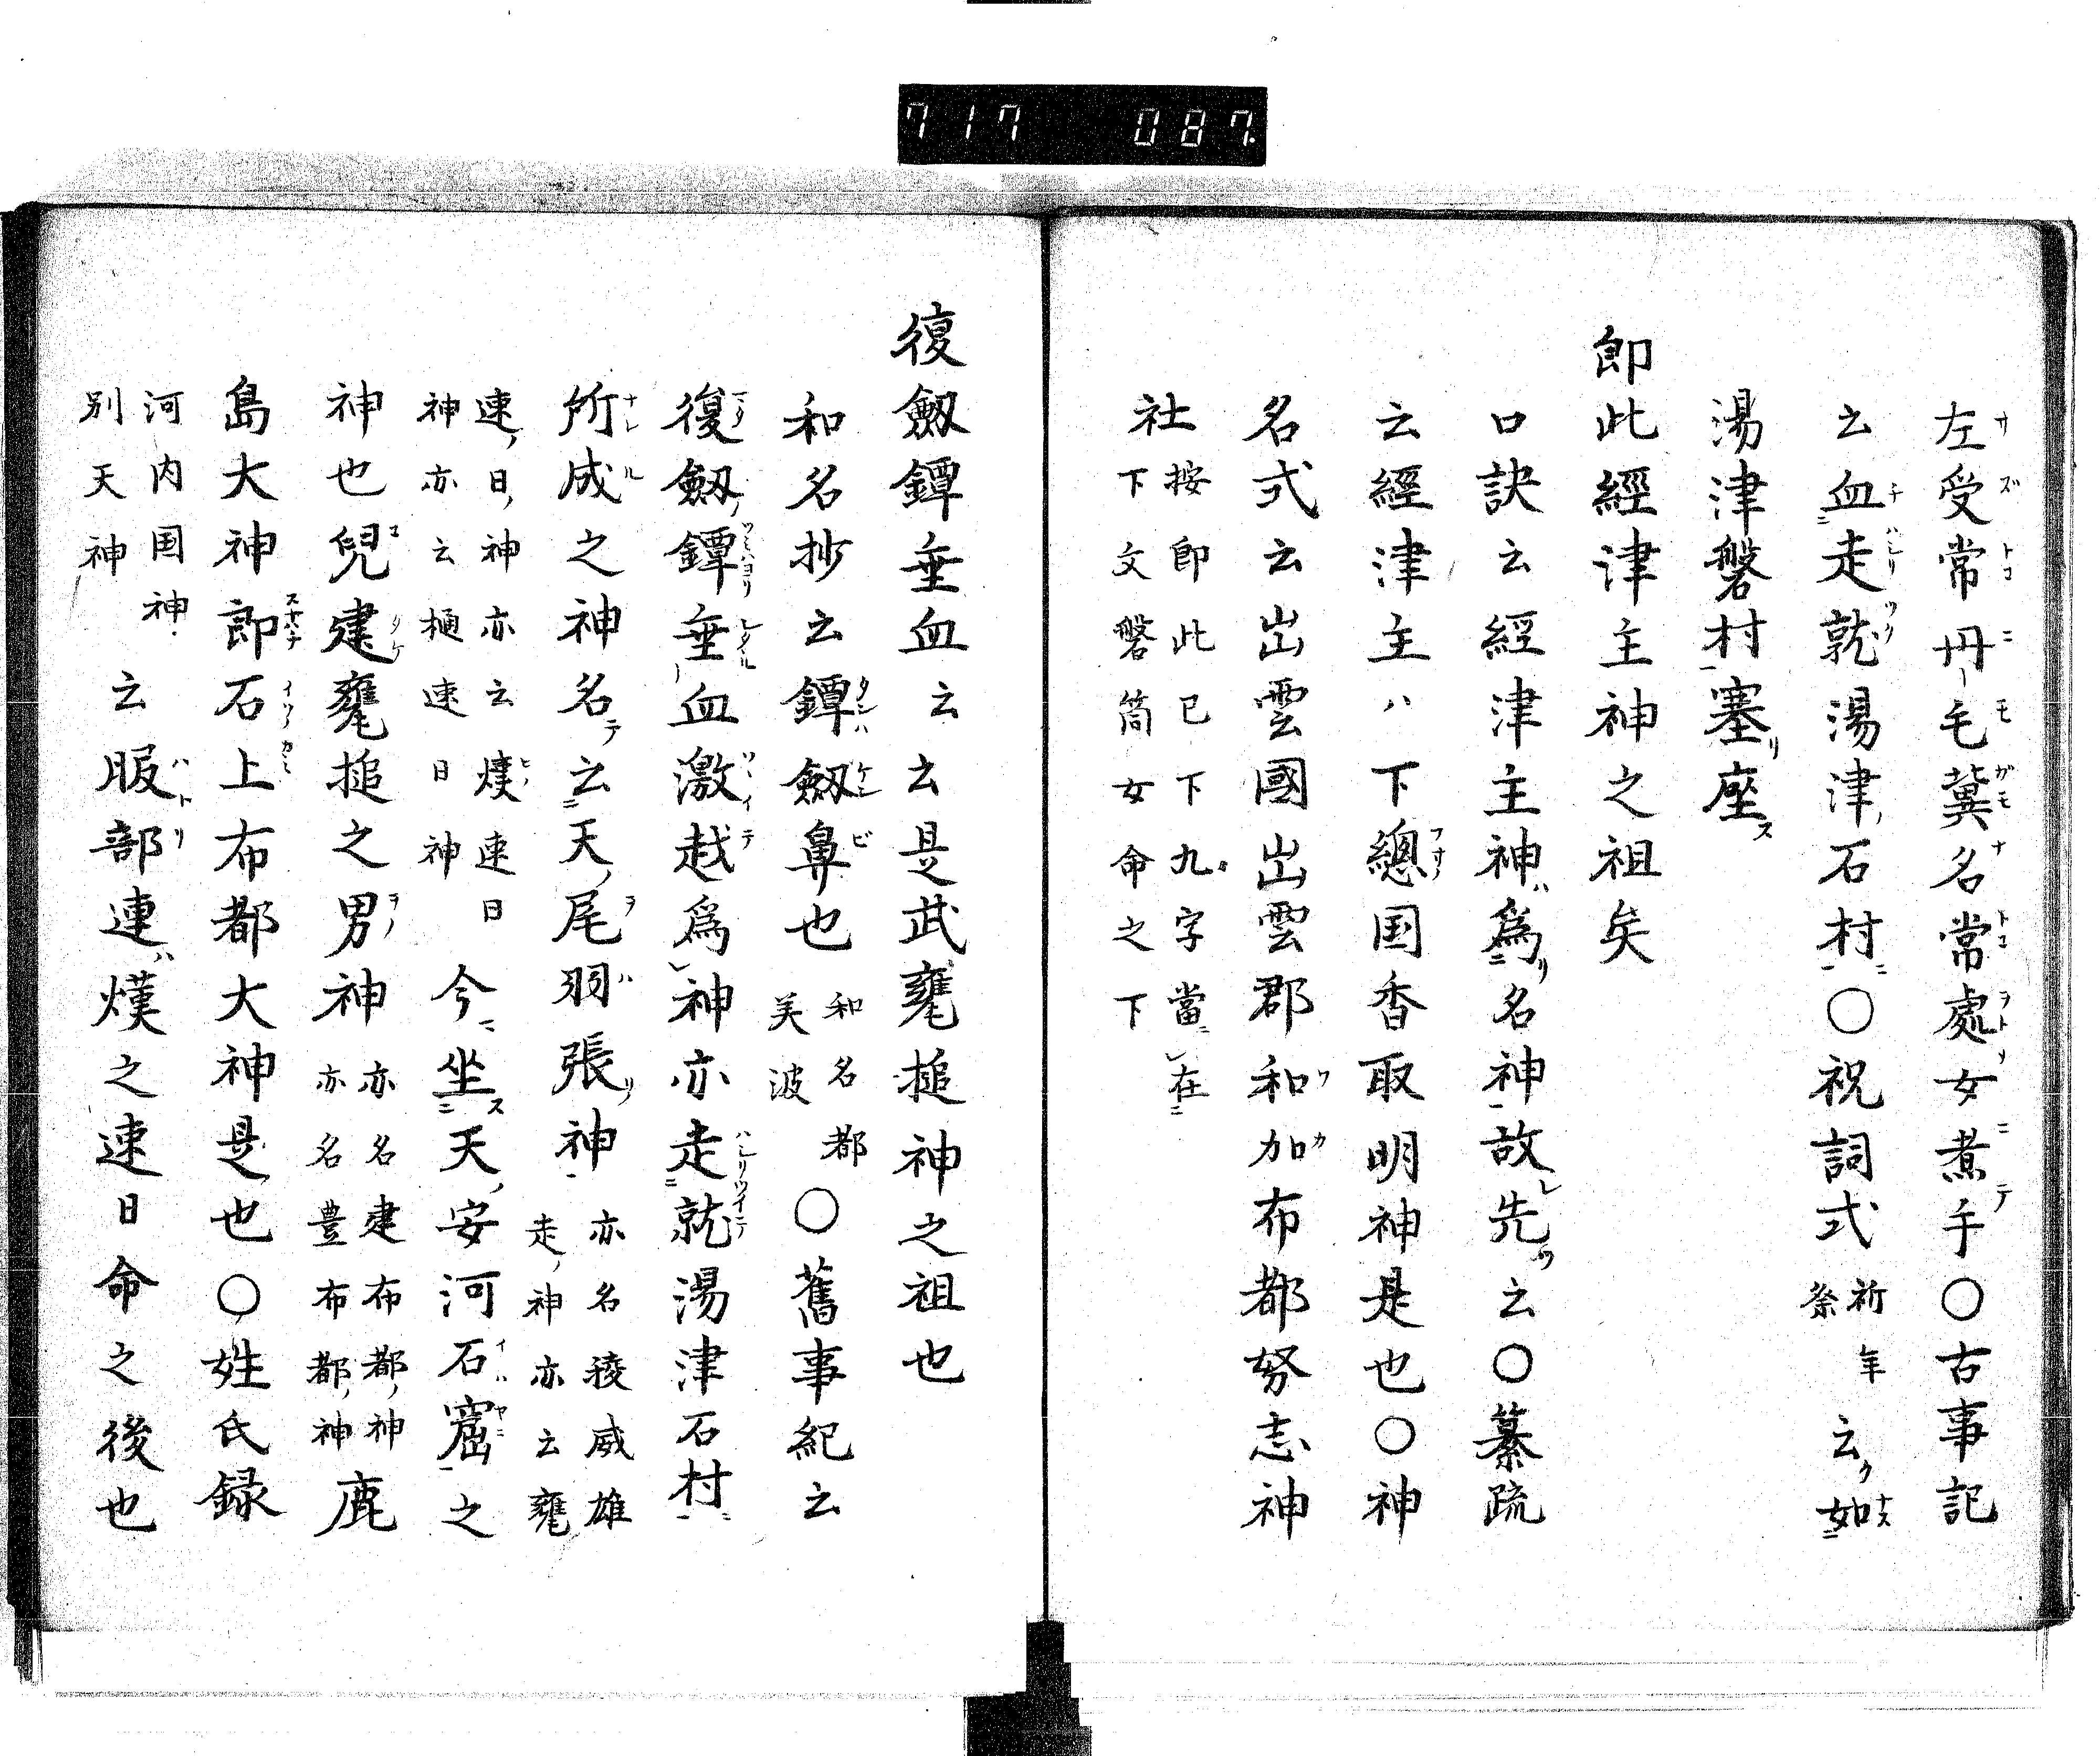 717 087
左受常丹毛冀名常處女煮手〇古事記
云血走就湯津石村〇祝詞式祈年祭云如
湯津磐村塞座
即此經津主神之祖矣
口訣云經津主神爲名神故先云〇纂疏
云經津主ハ下總国香取明神是也〇神
名式云出雲國出雲郡和加布都努志神
社按即此已下九字當在
下文磐筒女命之下
復劔鐔垂血云云是武甕槌神之祖也
和名抄云鐔劔鼻也和名都美波〇舊事紀云
復劔鐔垂血激越爲神亦走就湯津石村
所成之神名云天尾羽張神亦名稜威雄走神亦云甕
速日神亦云熯速日神亦云樋速日神今坐天安河石窟之
神也兒建甕槌之男神亦名建布都神亦名豊布都神鹿
島大神即石上布都大神是也〇姓氏録
河内国神別天神云服部連熯之速日命之後也